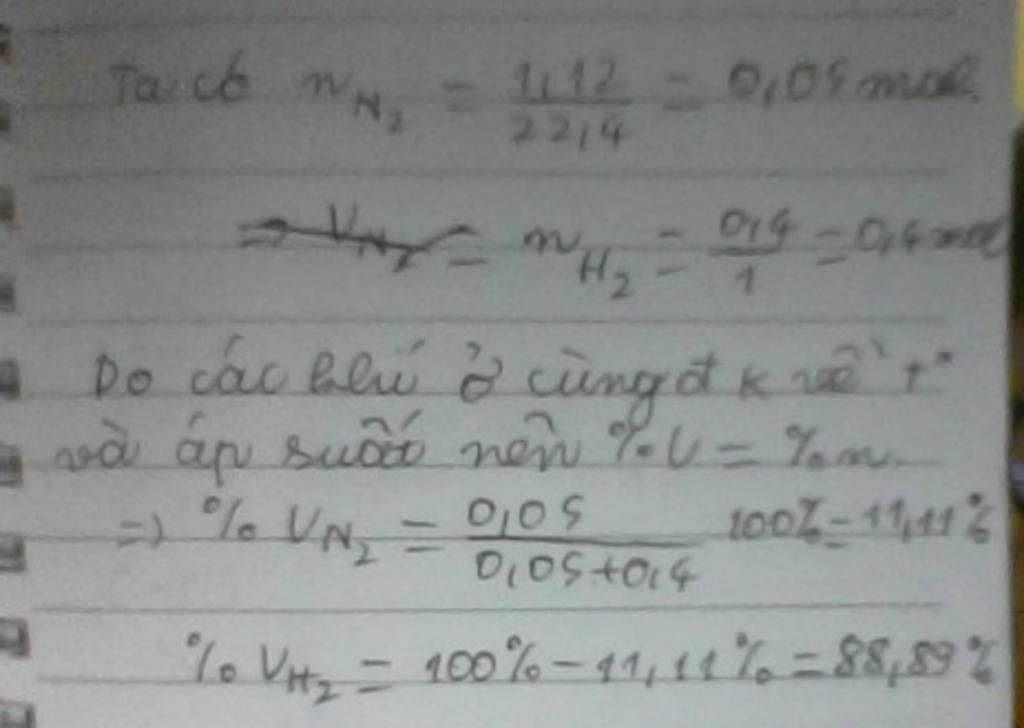 Ta có n N₂ = 1,12/22,4 = 0,05 mol.
⇒ V N₂ = n H₂ = 0,4/1 = 0,4 mol
Do các khí ở cùng đk về t°
và áp suất nên %V = %n.
=> % V N₂ = 0,05/0,05+0,4 100% = 11,11%
% V H₂ = 100% - 11,11% = 88,89%